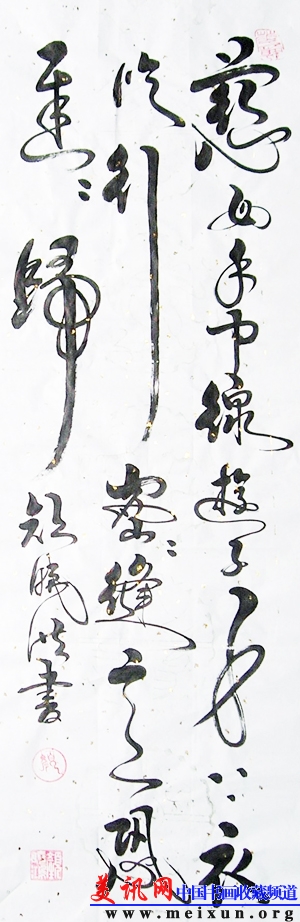 慈母手中線遊子身上衣
临行密〻縫意恐
遲〻歸
書
美讯网 中国书画收藏频道
www.meixun.org